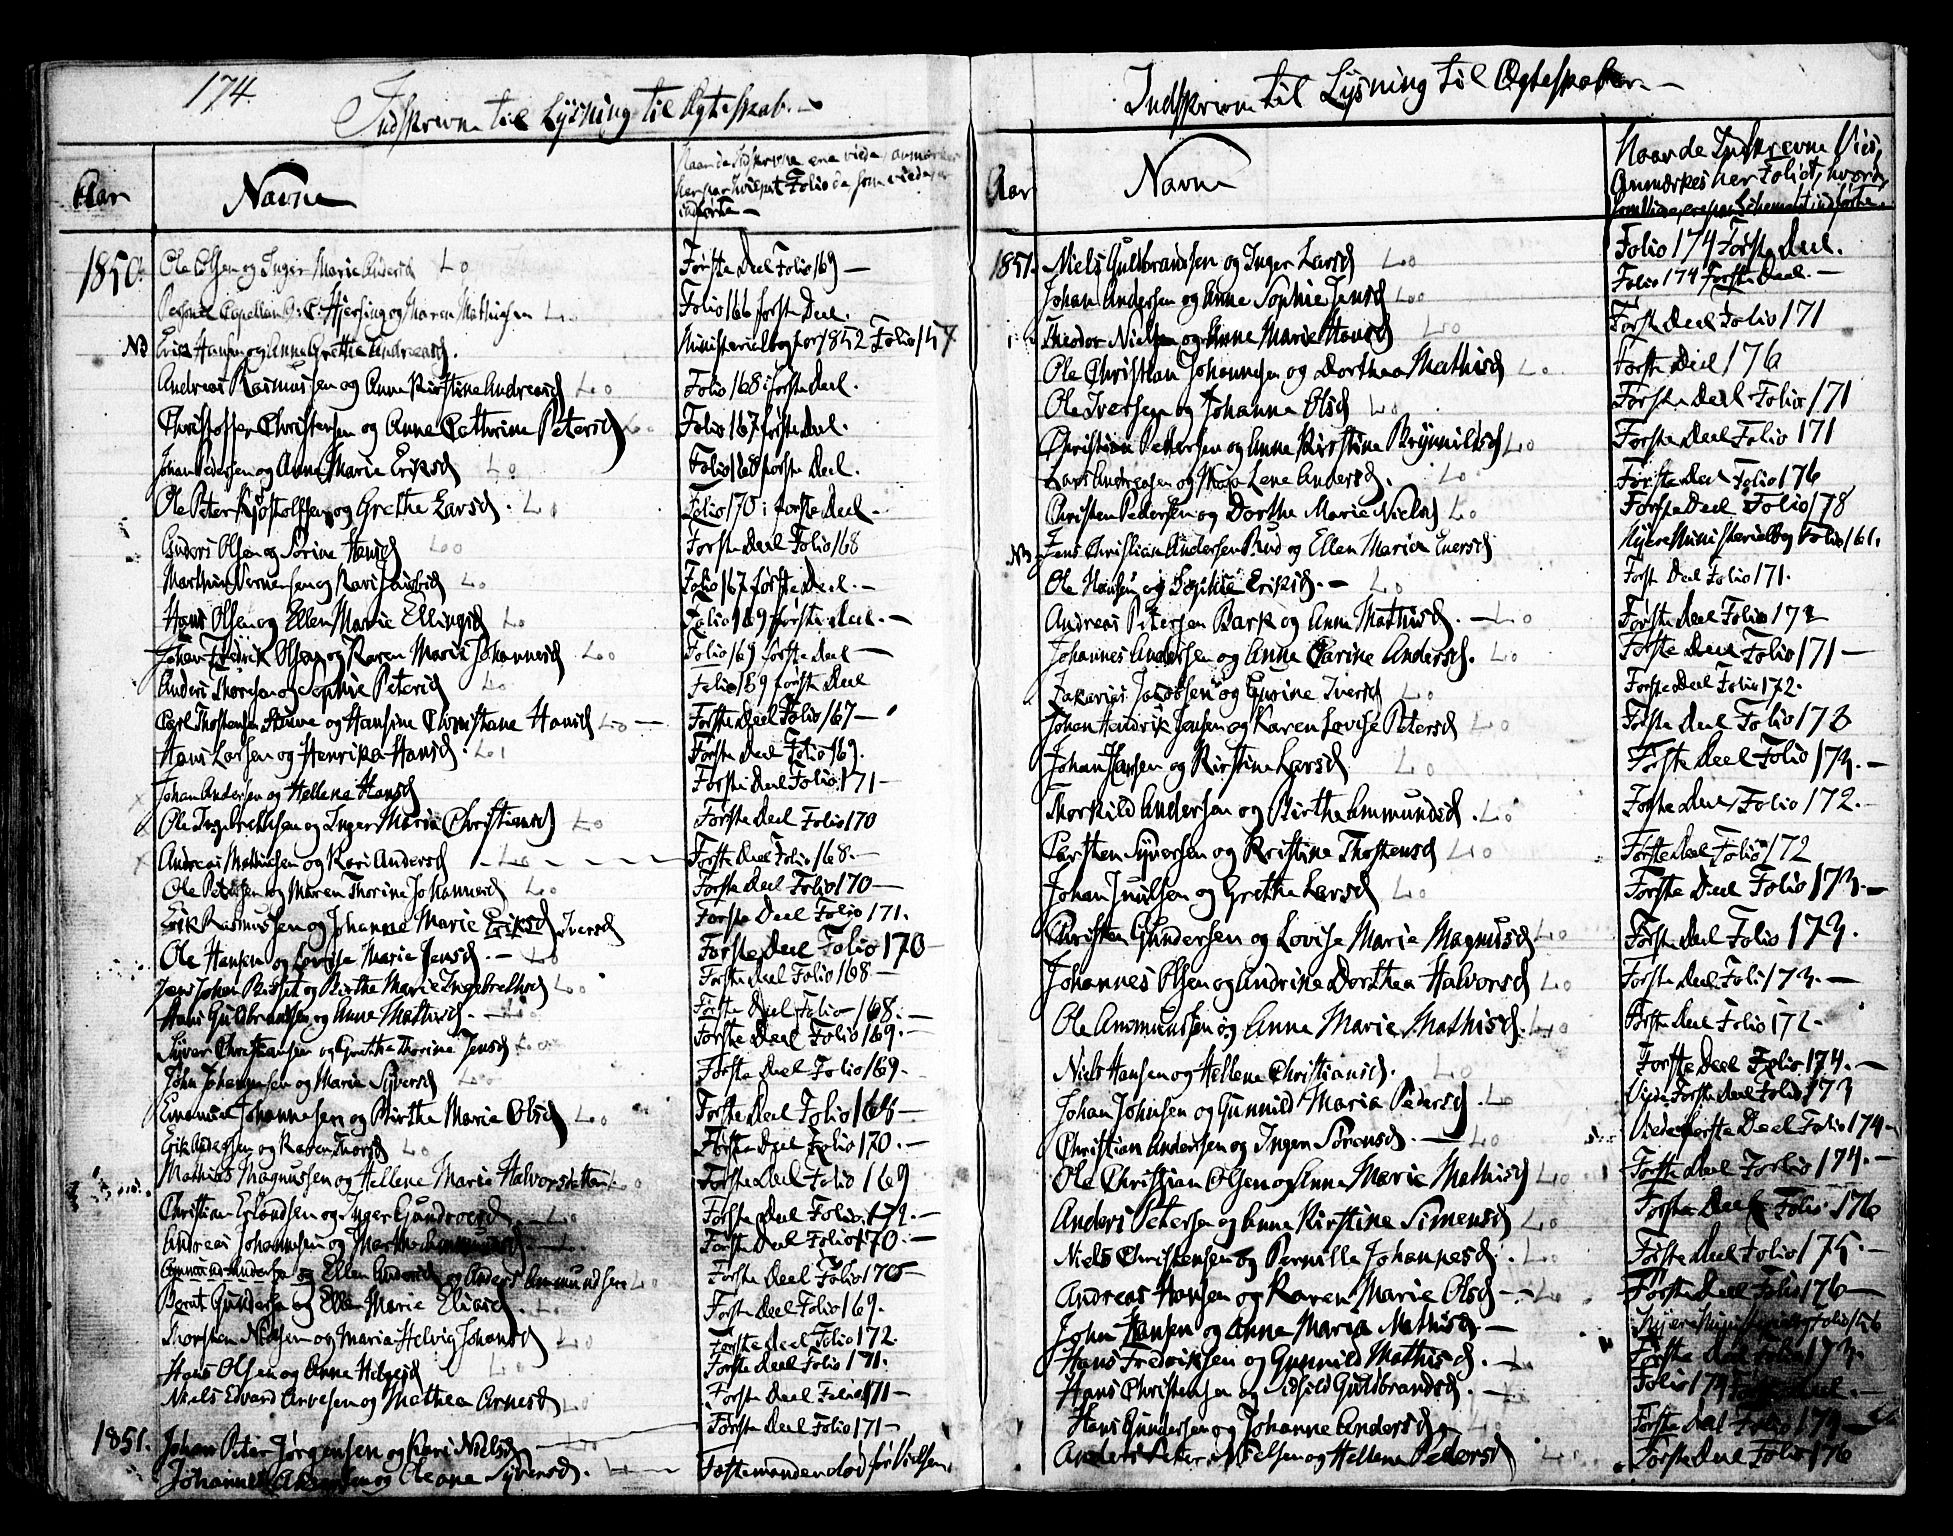 174.
Indskrevne til Lysning til Ægteskab. —
Aar
Navne
Naar de Indskrevne ere viede, anmærkes
her Folio de som viede er
indførte —
1850.
Ole Olsen og Inger Marie Andersd Lo
Første Deel Folio 169 —
Personel Capellan O. C. Hjersing og Maren Mathisen Lo
Folio 166 første Deel.
NB Erik Hansen og Anne Grethe Andreasd.
Ministerialbog for 1852 Folio 157
Andreas Rasmussen og Anne Kirstine Andreasd Lo
Folio 168 i første Deel.
Christoffer Christensen og Anne Cathrine Petersd Lo
Folio 167 første Deel.
Johan Pedersen og Anne Marie Eriksd Lo
Folio 168 første Deel.
Ole Peter Kjøstolfsen og Grethe Larsd. Lo
Folio 170 i første Deel —
Anders Olsen og Sørine Hansd Loo
Første Deel Folio 168
og Kari Lo
Folio 167 første Deel. —
Hans Olsen og Ellen Marie Ellingsd Lo
Folio 169 første Deel. —
Johan Fredrik Olsen og Karen Marie Johannesd Loo
Folio 169 første Deel —
Anders Thoresen og Sophie Petersd Lo
Folio 169 første Deel
Carl Thostensen Stuwe og Hansine Christiane Hansd Lo —
Første Deel Folio 167 —
Hans Larsen og Henrika Hansd. Lo
Første Deel Folio 169.
Johan Andersen og Hellena Hansd
Første Deel Folio 171 —
Ole Ingebrethsen og Inger Maria Christiansd Lo
Første Deel Folio 170
Andreas Mathisen og Kari Andersd — Lo — — —
Første Deel Folio 168. —
Ole Pedersen og Maren Thorine Johannesd Lo
Første Deel Folio 170 —
Erik Rasmussen og Johanne Marie Eriksd Iversd
Første Deel Folio 171.
Ole Hansen og Lovise Marie Jensd. — Lo
Første Deel Folio 170 —
Jens Johan og Birthe Marie Ingebrethsd Lo
Første Deel Folio 168 —
Hans Guldbrandsen og Anne Mathisd. — Lo
Første Deel Folio 168. —
Syver Christiansen og Grethe Thorine Jensd Loo
Første Deel Folio 169. —
John Johannesen og Maria Syversd Loo
Første Deel Folio 169.
Emanuel Johannesen og Birthe Marie Olsd Lo
Første Deel Folio 168 —
Erik Andersen og Karen Thorsd Lo
Første Deel Folio 170. —
Mathias Magnussen og Hellene Marie Halvorsdatter Lo
Første Deel Folio 169
Christian Erlandsen og Inger Gundersd Lo
Første Deel Folio 171. —
Andreas Johannesen og Marthe
Første Deel Folio 170. —
og Ellen Andersd og Anders Ammundsen Lo
Første Deel Folio 170 —
Bernt Gundersen og Ellen Marie Eliasd. Lo
Første Deel Folio 169.
Thorsten Nielsen og Maria Helvig Johansd Lo
Første Deel Folio 172.
Hans Olsen og Anne Helgesd Lo
Første Deel Folio 171.
Niels Edvard Arvesen og Mathea Arnesd Lo
Første Deel Folio 171 —
1851. Johan Peter Jørgensen og Kari Nielsd Lo
Første Deel Folio 171 —
Johannes og Oleane Syversd.
Fæstemanden død før Vielsen.
Indskrevne til Lysning til Ægteskaber —
Aar
Navne
Naar de Indskrevne Vies,
Anmærkes her Foliet, hvor de
som Viede ere paa Schemat indførte.
1851. Niels Guldbrandsen og Inger Larsd Lo
Folio 174 Første Deel.
Johan Andersen og Anne Sophie Jensd Loo
Folio 174 Første Deel. —
Theodor Nielsen og Anne Marie Hansd Lo
Første Deel Folio 171
Ole Christian Johannesen og Dorthea Mathisd Lo
Første Deel 176
Ole Iversen og Johanne Olsd Lo
Første Deel Folio 171
Christian Pettersen og Anne Kirstine Brynnildsd Lo
Første Deel Folio 171
Lars Andreasen og Maja Lene Andersd. Lo
Første Deel Folio 176
Christen Pedersen og Dorthe Marie Nielsd Lo
Første Deel Folio 178
NB Jens Christian Andersen Rud og Ellen Maria Evensd
Nyere Ministerialbog Folio 161.
Ole Hansen og Sophie Eriksd. — Lo
Første Deel Folio 171.
Andreas Petersen Bark og Anne Mathisd. — Lo
Første Deel Folio 172
Johannes Andersen og Anne Carine Andersd. Lo
Første Deel Folio 171 —
Zakarias Jacobsen og Gurine Iversd Lo
Første Deel Folio 172.
Johan Hendrik Jensen og Karen Lovise Petersd Lo
Første Deel Folio 173
Johan Hansen og Kirstine Larsd Lo
Første Deel Folio 173. —
Thorkild Andersen og Birthe Ammundsd. Lo
Første Deel Folio 172. —
Carsten Syversen og Kristine Thostensd Lo
Første Deel Folio 172
Johan Juulsen og Grethe Larsd Lo
Første Deel Folio 173. —
Christen Gundersen og Lovise Marie Magnusd Lo
Første Deel Folio 173.
Johannes Olsen og Andrine Dorthea Halvorsd Lo
Første Deel Foli 173. —
Ole Ammundsen og Anne Marie Mathisd. Lo
Første Deel Folio 172 —
Niels Hansen og Hellene Christiansd. Lo
Første Deel Folio 174. —
Johan Johnsen og Gunnild Maria Pedersd. Lo
Viede Første Deel Folio 173
Christian Andersen og Inger Sørensd. — Lo
Viede første Deel Folio 174 —
Ole Christian Olsen og Anne Marie Mathisd Lo
Første Deel Folio 174. —
Anders Petersen og Anne Kirstine Simensd Lo
Første Deel Folio 176
Niels Christensen og Pernille Johannesd. Lo
Første Deel Folio 175. —
Andreas Hansen og Karen Marie Olsd — Lo
Første Deel Folio 176 —
John Hansen og Anne Maria Mathisd. —
Nyere Ministerialbog Folio 156
Hans Fredriksen og Gunnild Mathisd. — Lo
Første Deel Folio 173.
Hans Christensen og Guldbrandsd. — Lo
Folio 174 Første Deel. —
Hans Gundersen og Johanne Andersd Lo
Første Deel Folio 174 —
Anders Peter Nielsen og Hellene Pedersd Lo
Første Deel Folio 176